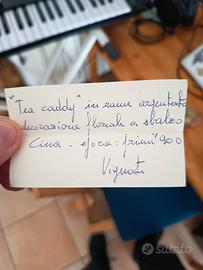 "Tea caddy" in rame argentato
decorazione floreale a sbalzo
Cina - epoca: primi '900
Vignati
Subito